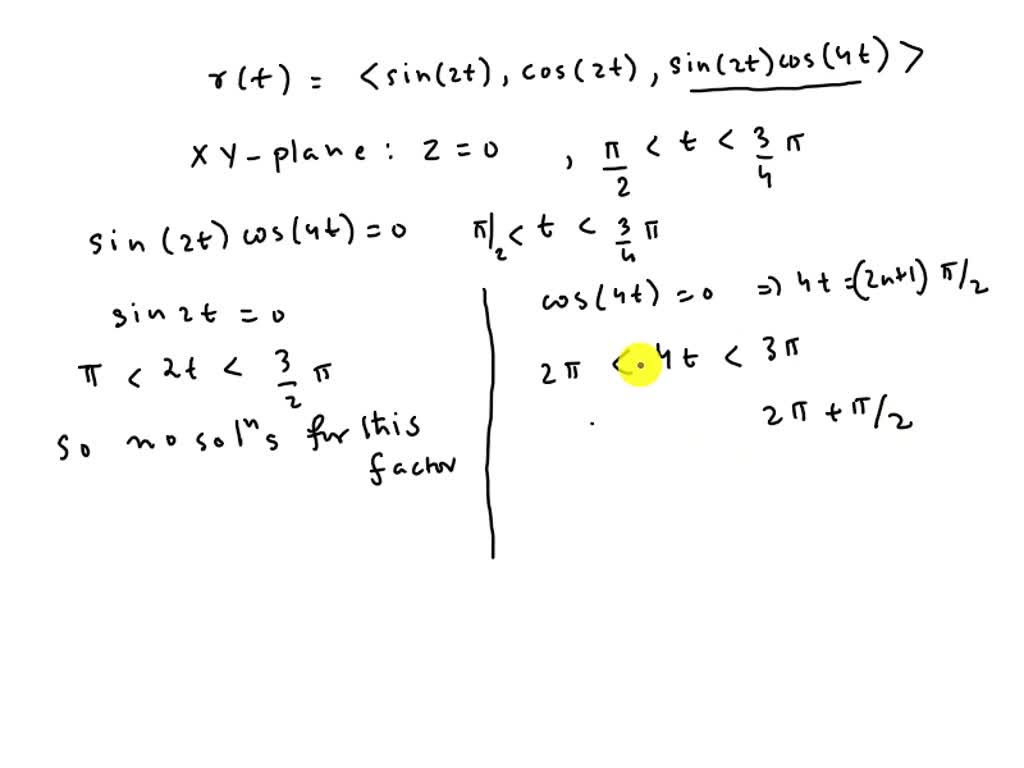 r(t) = <sin(2t), cos(2t), sin(2t)cos(4t)>
XY-plane: z=0 , π/2 < t < 3/4 π
sin(2t)cos(4t)=0 π/2 < t < 3/4 π
sin2t = 0
π < 2t < 3/2 π
so no solⁿs for this
factor
cos(4t)=0 ⇒ 4t=(2n+1)π/2
2π < 4t < 3π
2π + π/2